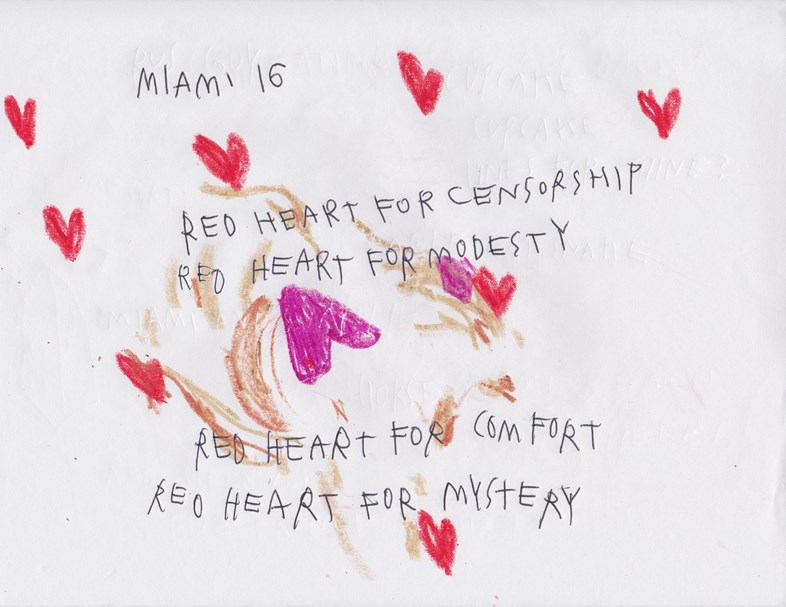 MIAMI 16
RED HEART FOR CENSORSHIP
RED HEART FOR MODESTY
RED HEART FOR COMFORT
RED HEART FOR MYSTERY